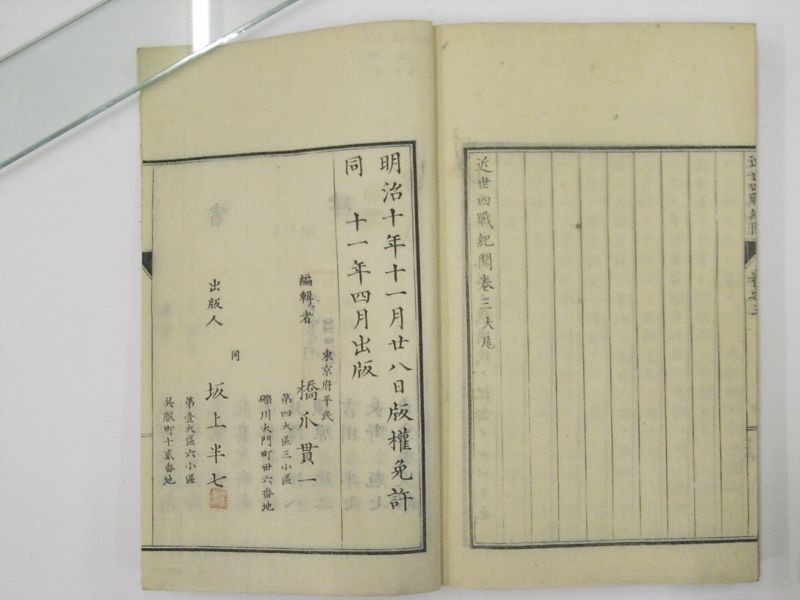 近世四戰紀聞
卷之三
近世四戰紀聞卷三大尾
明治十年十一月廿八日版權免許
同 十一年四月出版
東京府平民
編輯者 橋爪貫一
第四大區三小區
礫川大門町丗六番地
同
出版人 坂上半七
第壹大區六小區
呉服町十貳番地